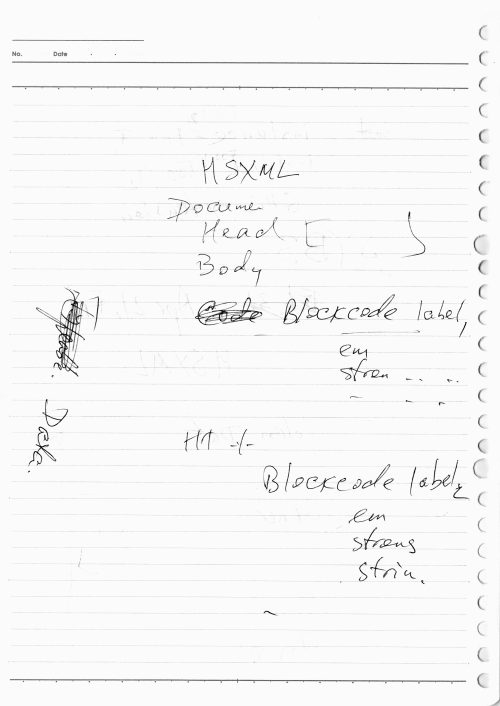 No. Date . .
HSXML
Docume
Head [ )
Body
Blockcode label,
em
stren .. ..
~ - -
Blockcode label2
em
strong
strin.
~
Data.